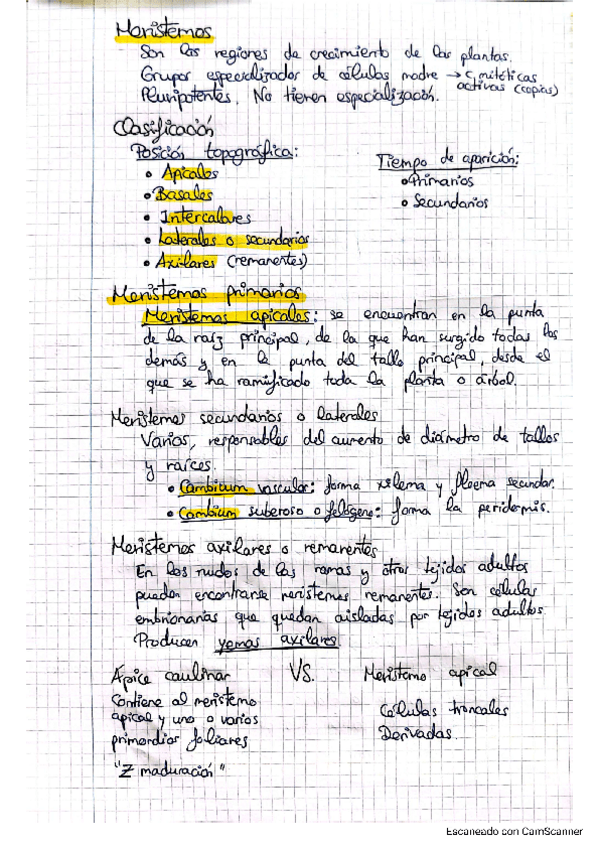 Meristemos
Son las regiones de crecimiento de las plantas.
Grupos especializados de células madre → c. mitóticas
activas (copias)
Pluripotentes. No tienen especialización.
Clasificación
Posición topográfica:
• Apicales
• Basales
• Intercalares
• Laterales o secundarios
• Axilares (remanentes)
Tiempo de aparición:
• Primarios
• Secundarios
Meristemos primarios
Meristemos apicales: se encuentran en la punta
de la raíz principal, de la que han surgido todas las
demás y en la punta del tallo principal, desde el
que se ha ramificado toda la planta o árbol.
Meristemos secundarios o laterales
Varios, responsables del aumento de diámetro de tallos
y raíces.
• Cambium vascular: forma xilema y floema secundar.
• Cambium suberoso o felógeno: forma la peridermis.
Meristemos axilares o remanentes
En los nudos de las ramas y otros tejidos adultos
pueden encontrarse meristemos remanentes. Son células
embrionarias que quedan aisladas por tejidos adultos
Producen yemas axilares
Ápice caulinar VS. Meristemo apical
Contiene al meristemo
apical y uno o varios
primordios foliares
"Z maduración"
Células troncales
Derivadas
Escaneado con CamScanner